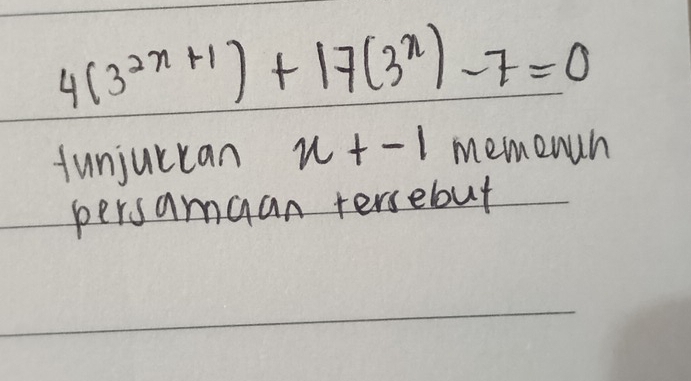 4(3^{2x+1}) + 17(3^x) - 7 = 0
tunjukkan x + -1 memenuh
persamaan tersebut